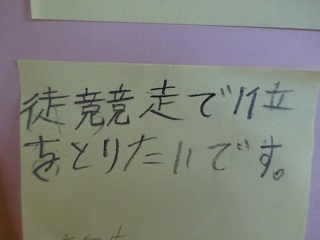 徒競走で1位
をとりたいです。